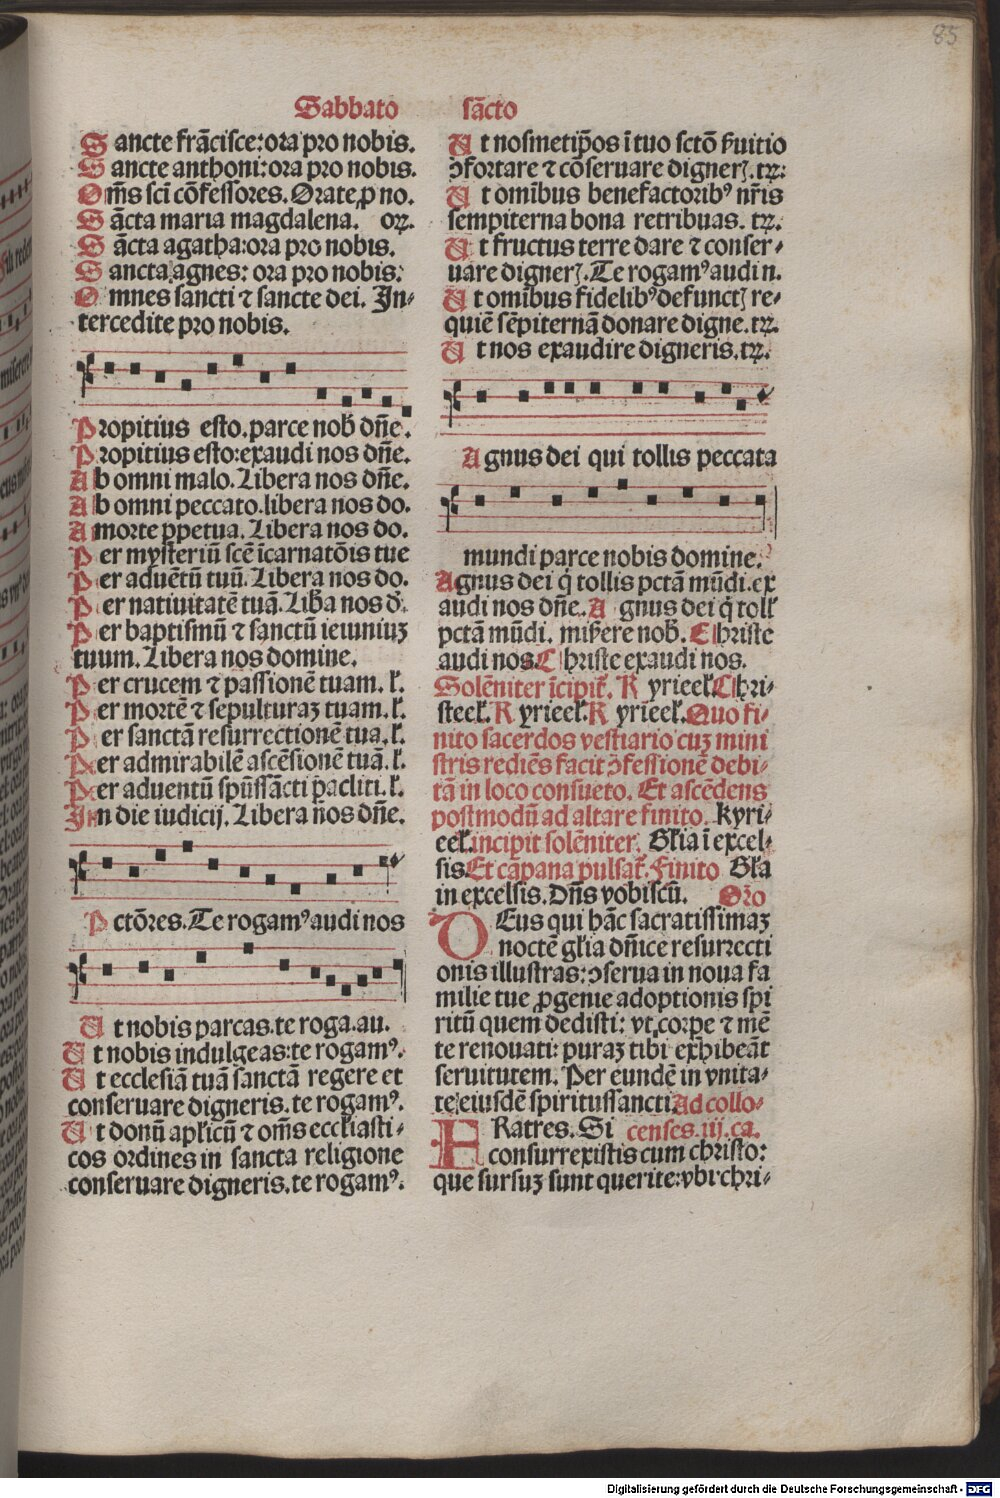 85
Sabbato sācto
Sancte frācisce: ora pro nobis.
Sancte anthoni: ora pro nobis.
Om̄s sci cōfessores. Orate ꝓ no.
Sācta maria magdalena. oꝝ.
Sācta agatha: ora pro nobis.
Sancta agnes: ora pro nobis:
Omnes sancti ⁊ sancte dei. In-
tercedite pro nobis.
Propitius esto. parce nob̄ dn̄e.
Propitius esto: exaudi nos dn̄e.
Ab omni malo. Libera nos dn̄e.
Ab omni peccato. libera nos do.
A morte ꝑpetua. Libera nos do.
Per mysteriū scē īcarnatōis tue
Per aduētū tuū. Libera nos do.
Per natiuitatē tuā. Lib̄a nos d̄.
Per baptismū ⁊ sanctū ieiuniuꝫ
tuum. Libera nos domine.
Per crucem ⁊ passionē tuam. ł.
Per mortē ⁊ sepulturaꝫ tuam. ł.
Per sanctā resurrectionē tuā. ł.
Per admirabilē ascēsionē tuā. ł.
Per aduentū spūssācti paracliti. ł.
In die iudicij. Libera nos dn̄e.
Pctōres. Te rogamꝰ audi nos
Ut nobis parcas. te roga. au.
Ut nobis indulgeas: te rogamꝰ.
Ut ecclesiā tuā sanctā regere et
conseruare digneris. te rogamꝰ.
Ut donū apłicū ⁊ om̄s ecclīasti-
cos ordines in sancta religione
conseruare digneris. te rogamꝰ.
Ut nosmetip̄os ī tuo sctō s̄uitio
ↄfortare ⁊ cōseruare digneꝛ. tꝝ:
Ut omībus benefactoribꝰ nr̄is
sempiterna bona retribuas. tꝝ.
Ut fructus terre dare ⁊ conser-
uare digneꝛ. Te rogamꝰ audi n.
Ut omībus fidelibꝰ defunctꝭ re-
quiē sēpiternā donare digne. tꝝ.
Ut nos exaudire digneris. tꝝ.
Agnus dei qui tollis peccata
mundi parce nobis domine.
Agnus dei q̇ tollis pctā mūdi. ex
audi nos dn̄e. Agnus dei q̇ toll̄
pctā mūdi. mis̄ere nob̄. Christe
audi nos. Christe exaudi nos.
Solēniter īcipit̄. Kyrieel̄. Chri-
steel̄. Kyrieel̄. Kyrieel̄. Quo fi-
nito sacerdos vestiario cuꝫ mini
stris rediēs facit ↄfessionē debi-
tā in loco consueto. Et ascēdens
postmodū ad altare finito. Kyri-
eel̄. incipit solēniter. Glīa ī excel-
sis. Et cāpana pulsat̄. Finito Glīa
in excelsis. Dn̄s vobiscū. Orō
DEus qui hāc sacratissimaꝫ
noctē glīa dn̄ice resurrecti
onis illustras: ↄserua in noua fa
milie tue ꝓgenie adoptionis spi
ritū quem dedisti: vt corpe ⁊ mē
te renouati: puraꝫ tibi exhibeāt
seruitutem. Per eundē in vnita-
te eiusdē spiritussancti Ad collo-
FRatres. Si censes. iij. ca.
consurrexistis cum christo:
que sursuꝫ sunt querite: vbi chri-
Digitalisierung gefördert durch die Deutsche Forschungsgemeinschaft - DFG